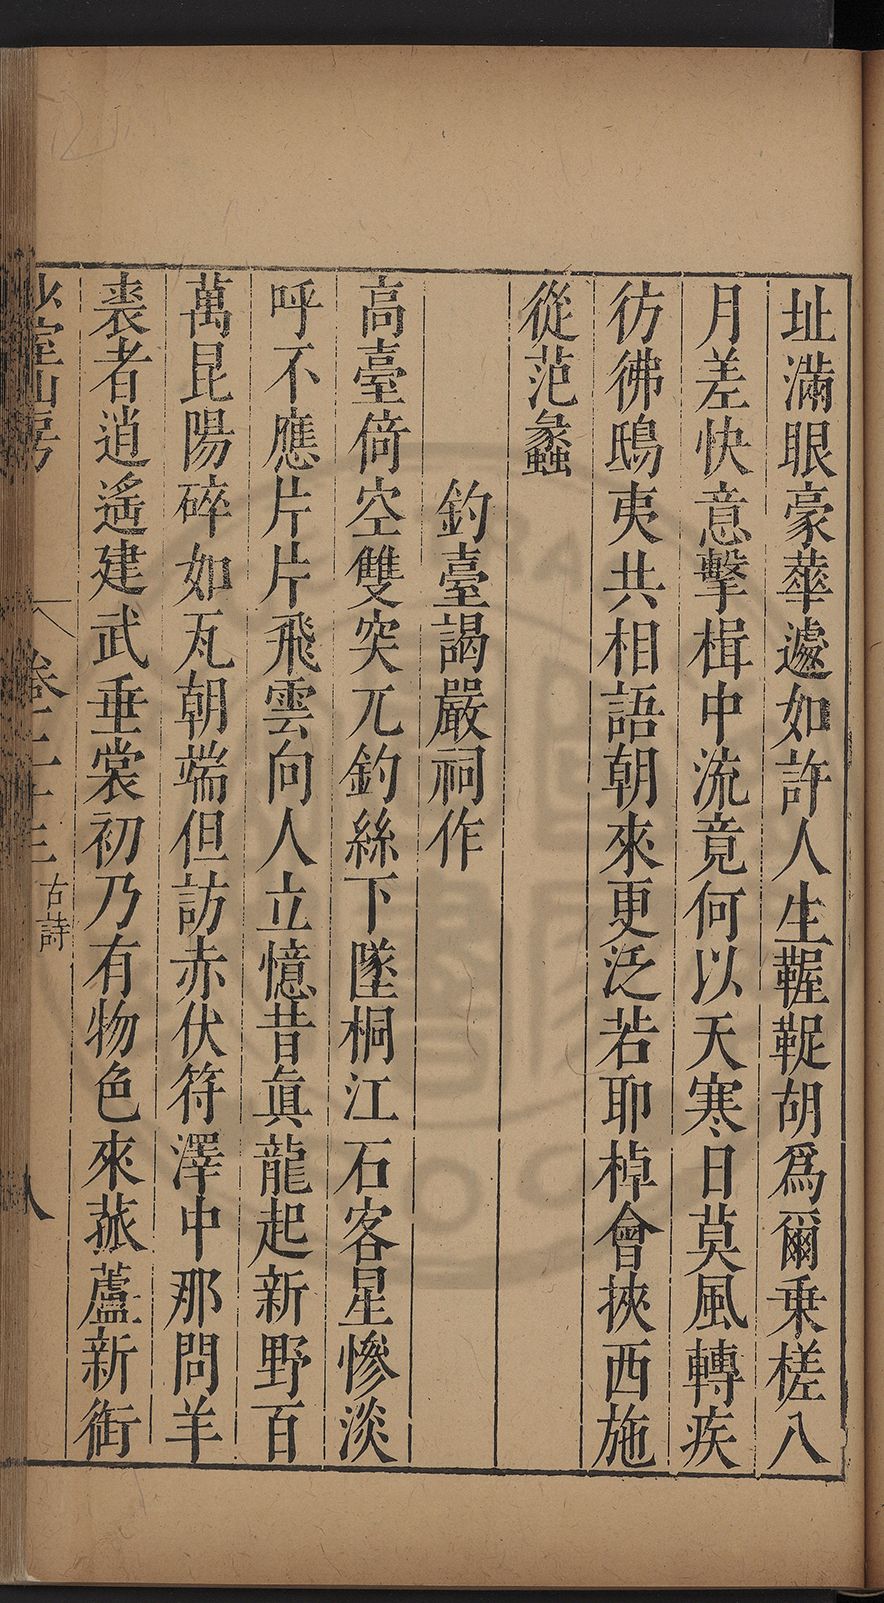 址滿眼豪華遽如許人生齷齪胡爲爾乗槎八
月差快意擊楫中流竟何以天寒日莫風轉疾
彷彿鴟夷共相語朝來更泛若耶棹會挾西施
從范蠡
釣臺謁嚴祠作
高臺倚空雙突兀釣絲下墜桐江石客星慘淡
呼不應片片飛雲向人立憶昔眞龍起新野百
萬昆陽碎如瓦朝端但訪赤伏符澤中那問羊
裘者逍遙建武垂裳初乃有物色來菰蘆新銜
少室山房
卷二十三
古詩
八